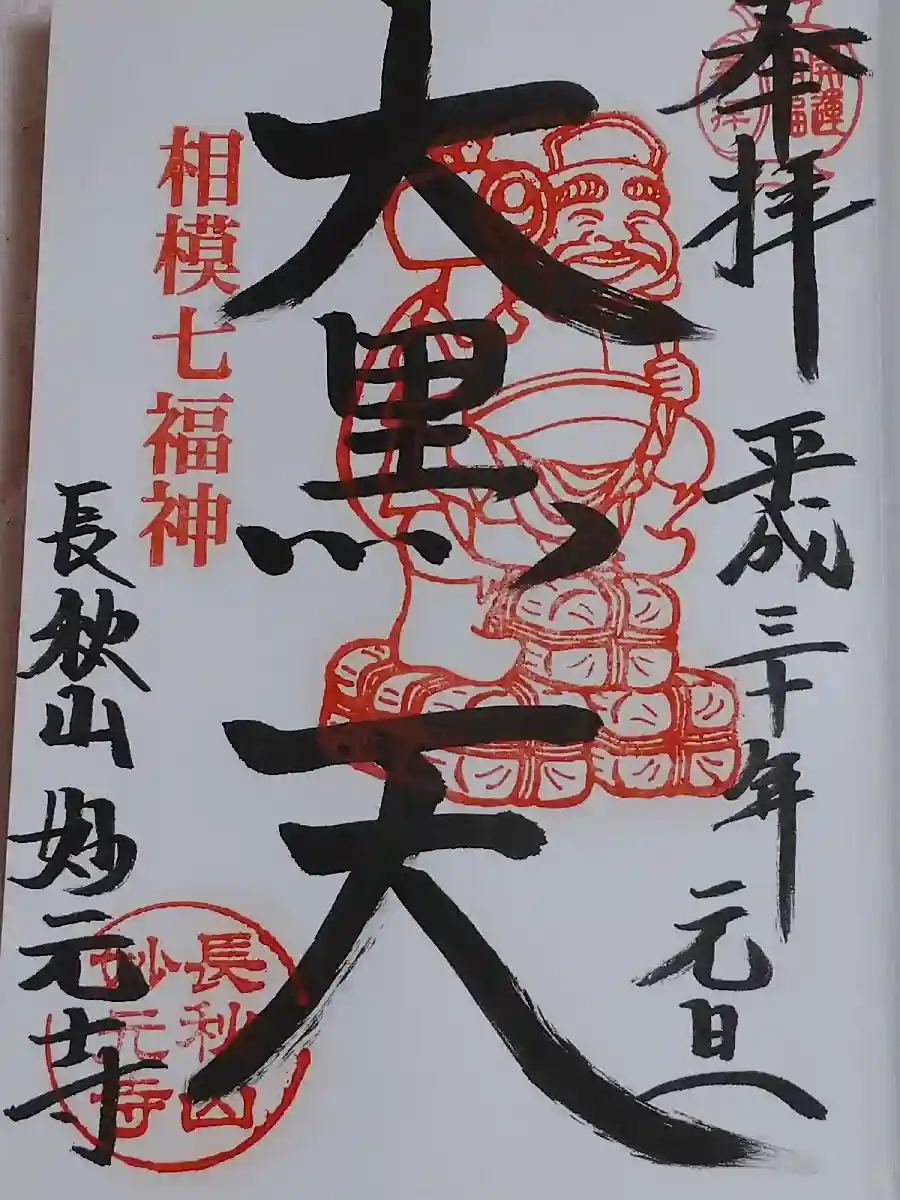 奉拝
平成三十年
元旦
開運
招福
大黒天
相模七福神
長秋山
妙元寺
長秋山
妙元寺